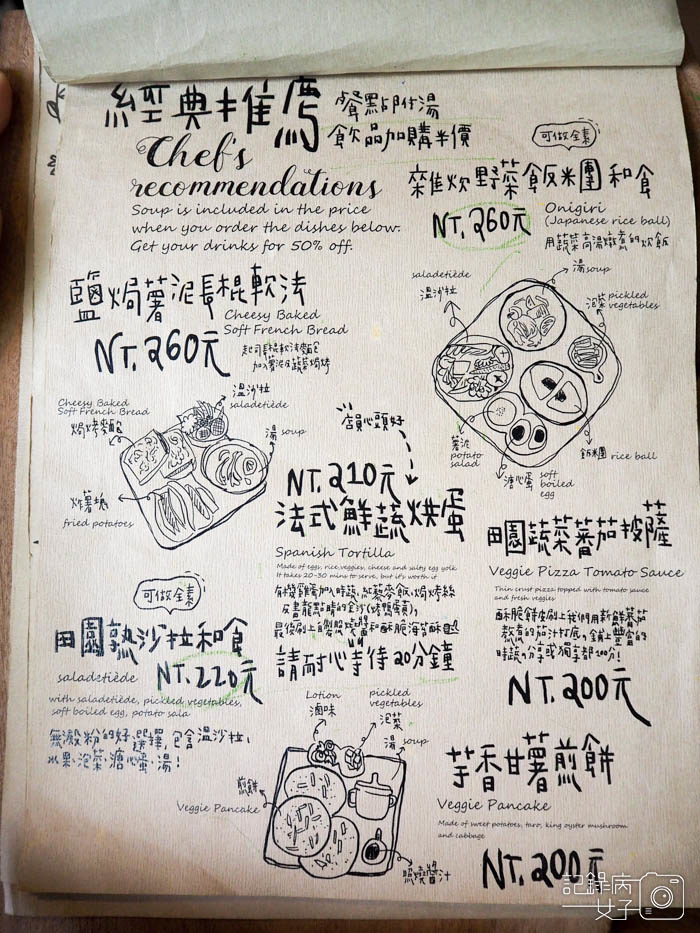 經典推薦
餐點即附湯
飲品加購半價
Chef's
recommendations
Soup is included in the price
when you order the dishes below.
Get your drinks for 50% off.
可做全素
雜炊野菜飯米團和食
NT.260元
Onigiri
(Japanese rice ball)
用蔬菜高湯燉煮的炊飯
saladetiède
溫沙拉
湯 soup
泡菜 pickled
vegetables
薯泥
potato
salad
溏心蛋
soft
boiled
egg
飯米團 rice ball
鹽焗薯泥長棍軟法
Cheesy Baked
Soft French Bread
NT.260元
起司長棍軟法麵包
加入薯泥及蔬菜焗烤
Cheesy Baked
Soft French Bread
焗烤麵包
溫沙拉
saladetiède
湯 soup
炸薯塊
fried potatoes
店員心頭好
NT.210元
法式鮮蔬烘蛋
Spanish Tortilla
Made of eggs, rice, veggies, cheese and salty egg yolk.
It takes 20-30 mins to serve, but it's worth it
有機雞蛋加入時蔬、紅藜麥飯、焗烤絲
最後刷上自製照燒醬和酥脆海苔酥
請耐心等待20分鐘
田園蔬菜蕃茄披薩
Veggie Pizza Tomato Sauce
Thin crust pizza topped with tomato sauce
and fresh veggies
酥脆餅皮刷上我們用新鮮蕃茄
熬煮的茄汁打底，鋪上豐富的
時蔬，分享或獨享都100分！
NT.200元
可做全素
田園熟沙拉和食
saladetiède
NT.220元
with saladetiède, pickled vegetables,
soft boiled egg, potato sala
無澱粉的好選擇，包含溫沙拉、
水果、泡菜、溏心蛋、湯！
Lotion
滷味
pickled
vegetables
泡菜
湯 soup
煎餅
Veggie Pancake
照燒醬汁
芋香甘薯煎餅
Veggie Pancake
Made of sweet potatoes, taro, king oyster mushroom
and cabbage
NT.200元
記錄病
女子